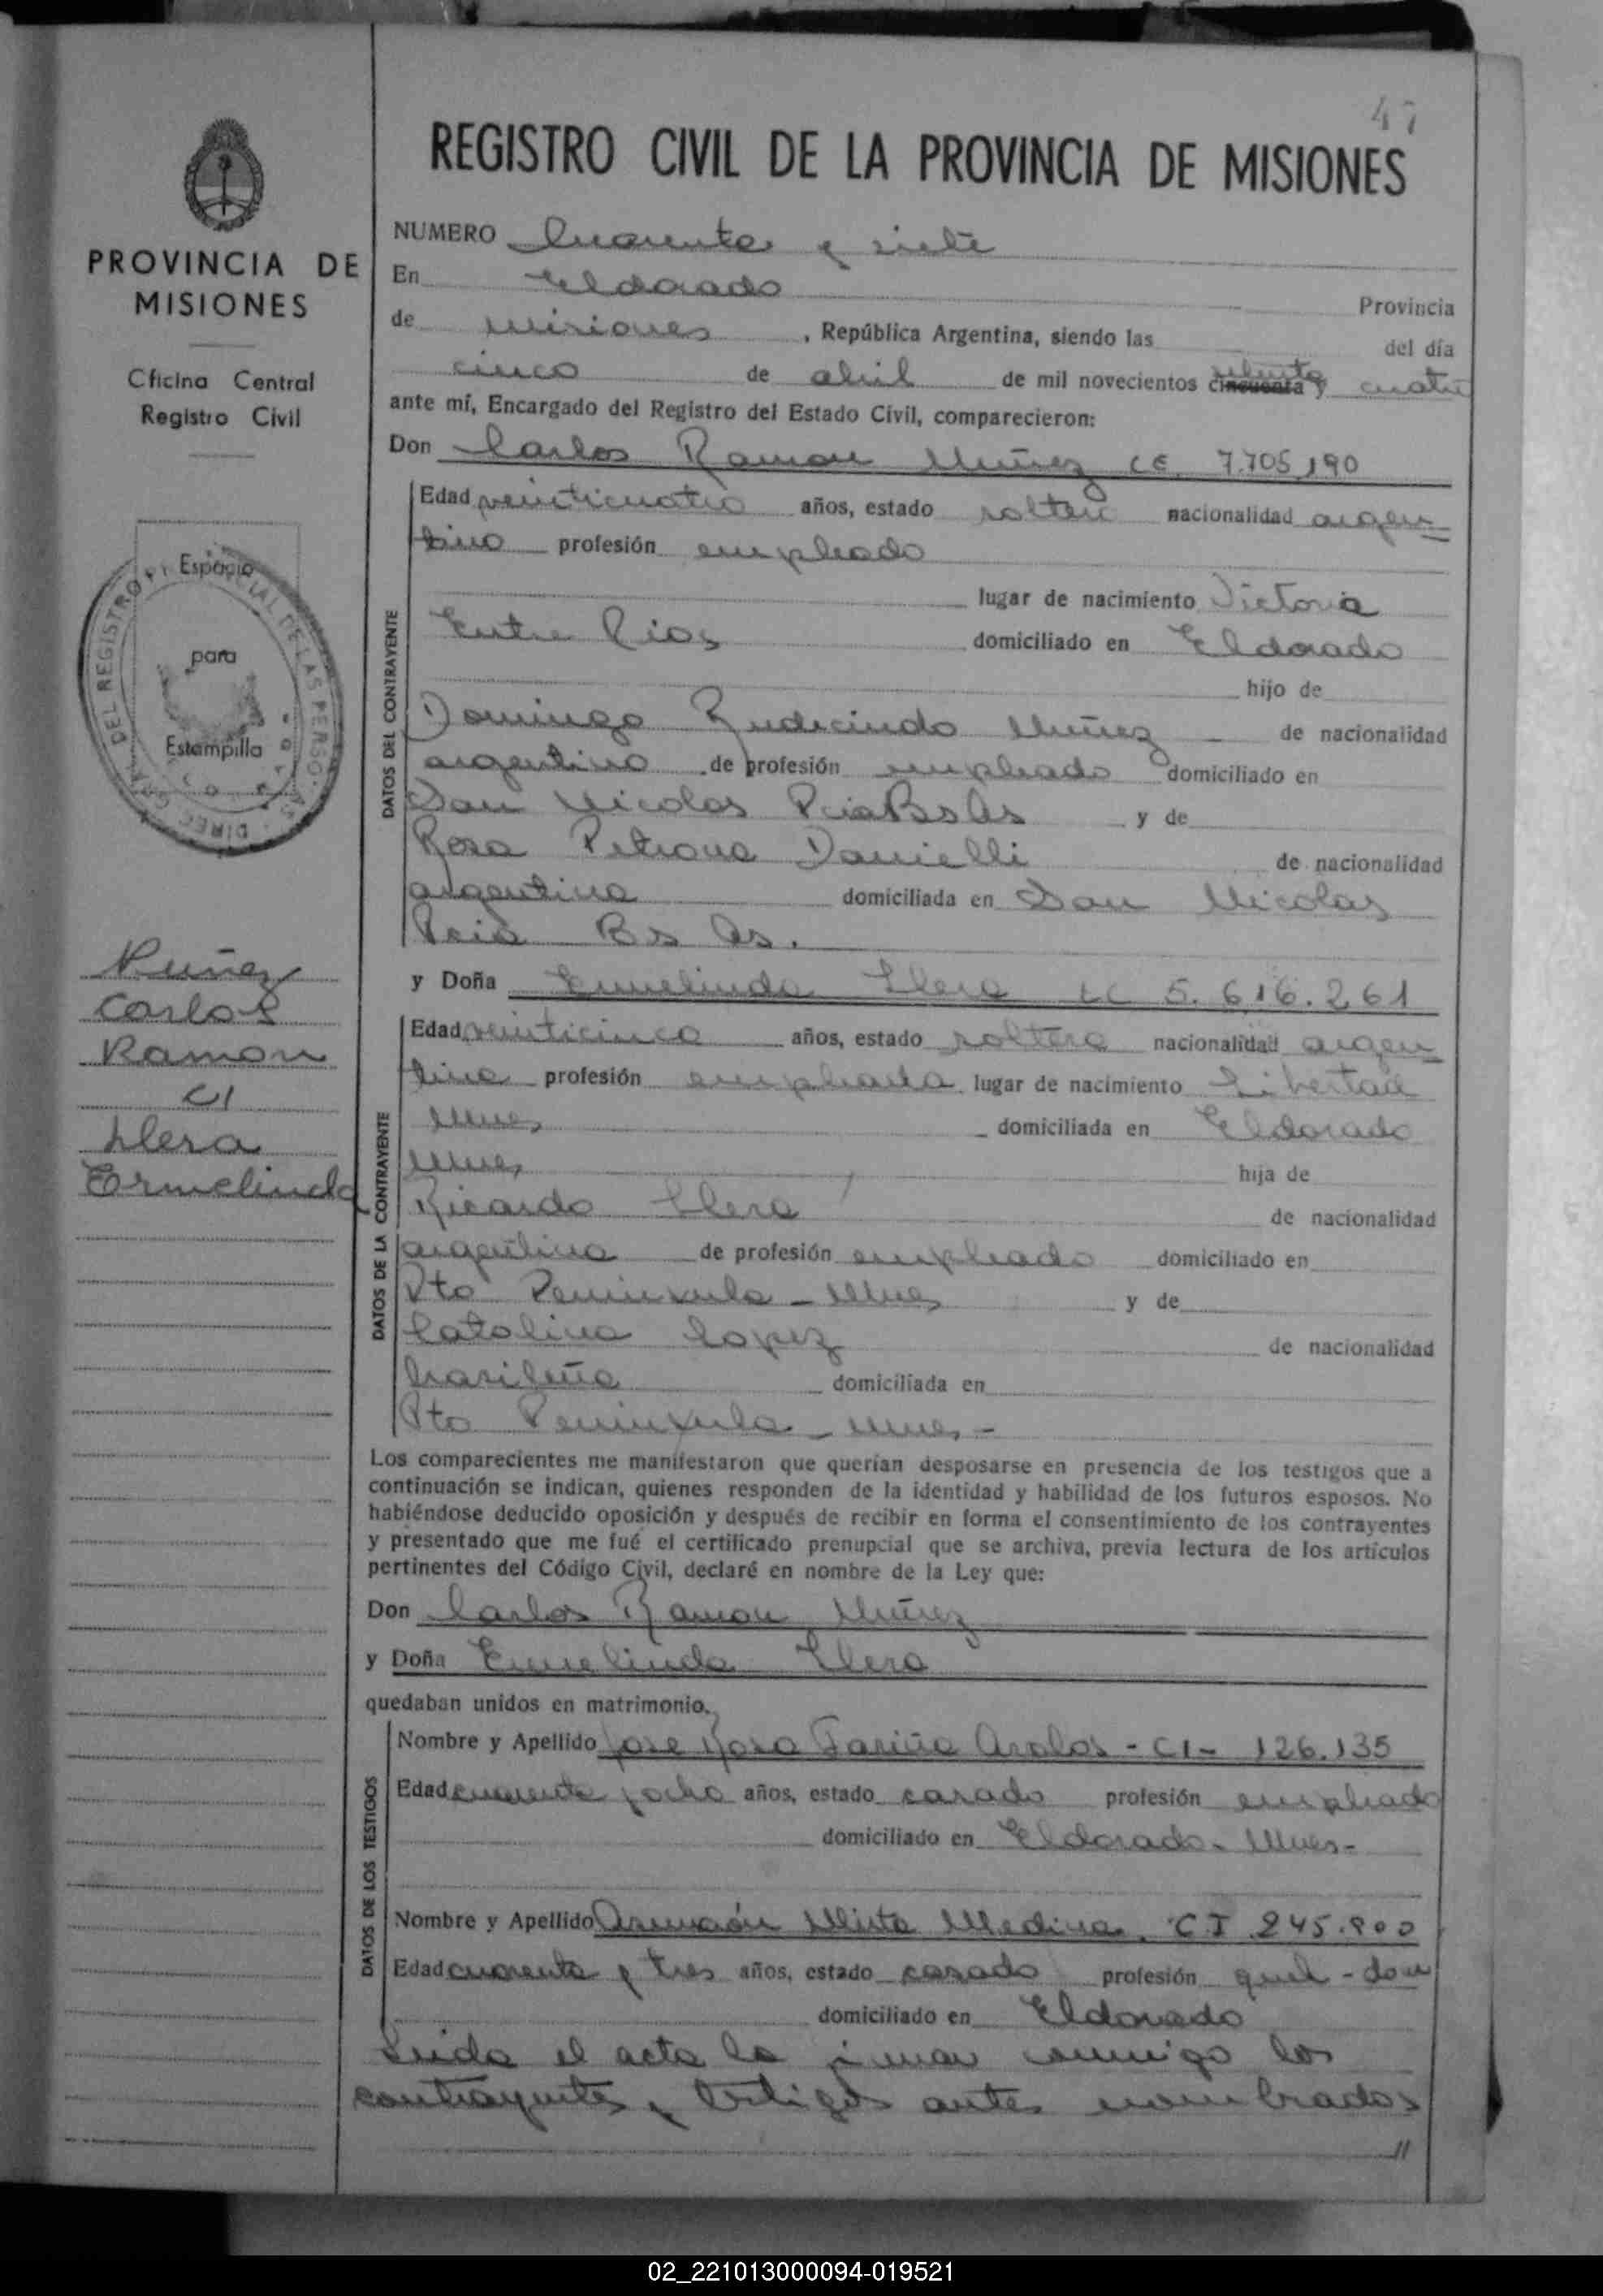 47
REGISTRO CIVIL DE LA PROVINCIA DE MISIONES
PROVINCIA DE
MISIONES
Oficina Central
Registro Civil
Espacio
para
Estampilla
Nuñez
Carlos
Ramon
c/
Llera
Ermelinda
NUMERO Cuarenta y siete
En Eldorado Provincia
de Misiones , República Argentina, siendo las del día
cinco de abril de mil novecientos cincuenta setenta y cuatro
ante mí, Encargado del Registro del Estado Civil, comparecieron:
Don Carlos Ramon Nuñez LE 7.705.190
Edad veinticuatro años, estado soltero nacionalidad argen-
tino profesión empleado
lugar de nacimiento Victoria
Entre Rios domiciliado en Eldorado
hijo de
Domingo Rudecindo Nuñez - de nacionalidad
argentino de profesión empleado domiciliado en
San Nicolas Pcia Bs As y de
Rosa Petrona Danielli de nacionalidad
argentina domiciliada en San Nicolas
Pcia Bs As.
y Doña Ermelinda Llera LC 5.616.261
Edad veinticinco años, estado soltera nacionalidad argen-
tina profesión empleada lugar de nacimiento Libertad
Mnes, domiciliada en Eldorado
Mnes, hija de
Ricardo Llera de nacionalidad
argentina de profesión empleado domiciliado en
Pto Peninsula - Mnes y de
Catalina Lopez de nacionalidad
brasileña domiciliada en
Pto Peninsula - Mnes, -
DATOS DEL CONTRAYENTE
DATOS DE LA CONTRAYENTE
Los comparecientes me manifestaron que querían desposarse en presencia de los testigos que a
continuación se indican, quienes responden de la identidad y habilidad de los futuros esposos. No
habiéndose deducido oposición y después de recibir en forma el consentimiento de los contrayentes
y presentado que me fué el certificado prenupcial que se archiva, previa lectura de los artículos
pertinentes del Código Civil, declaré en nombre de la Ley que:
Don Carlos Ramon Nuñez
y Doña Ermelinda Llera
quedaban unidos en matrimonio.
Nombre y Apellido Jose Rosa Fariña Avalos - CI - 126.135
Edad cuarenta y ocho años, estado casado profesión empleado
domiciliado en Eldorado - Mnes -
Nombre y Apellido Asunción Medina. CI 245.900
Edad cuarenta y tres años, estado casado profesión
domiciliado en Eldorado
DATOS DE LOS TESTIGOS
Leida el acta la firman conmigo los
contrayentes y testigos antes nombrados
//
02_221013000094-019521